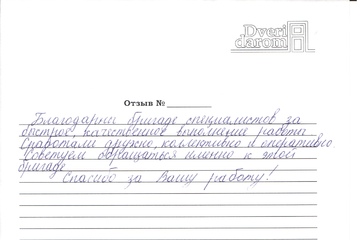 Dveri
darom
Отзыв № ________
Благодарны бригаде специалистов за
быстрое, качественное выполнение работы
Сработали дружно, коллективно и оперативно.
Советуем обращаться именно к этой
бригаде
Спасибо за Вашу работу!